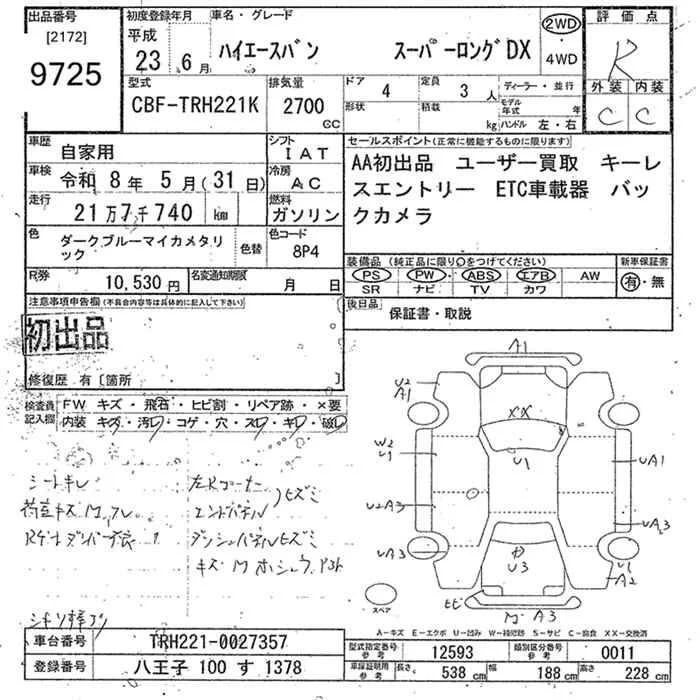 出品番号
[2172]
9725
初度登録年月
平成
23 6月
車名・グレード
ハイエースバン スーパーロングDX
2WD
・
4WD
評価点
R
外装 内装
C C
型式
CBF-TRH221K
排気量
2700
cc
ドア
4
形状
定員
3人
積載
kg
ディーラー・並行
モデル年式 年
ハンドル 左・右
車歴
自家用
シフト
IAT
車検
令和 8年 5月(31日)
冷房
AC
走行
21万7千740 km
燃料
ガソリン
色
ダークブルーマイカメタリック
色替
色コード
8P4
R券
10,530円
名変通知期限
月 日
セールスポイント(正常に機能するものに限ります)
AA初出品 ユーザー買取 キーレ
スエントリー ETC車載器 バッ
クカメラ
装備品 (純正品に限り○をつけてください)
PS・PW・ABS・エアB AW
SR ナビ TV カワ
新車保証書
有・無
後日品
保証書・取説
注意事項申告欄(不具合内容等は具体的に記入して下さい)
初出品
修復歴 有〔箇所 〕
検査員
記入欄
FW キズ・飛石・ヒビ割・リペア跡・×要
内装 キズ・汚レ・コゲ・穴・スレ・キレ・破レ
シートキレ
エンドパネル
A1
U2
A1
XX
U1
W2
U1
UA1
U2A3
UA3
UA3
U3
U1
A2
スペア
A3
A−キズ E−エクボ U−凹み W−補修跡 S−サビ C−腐食 XX−交換済
車台番号
TRH221-0027357
登録番号
八王子 100 す 1378
型式指定番号
参考
12593
類別区分番号
参考
0011
車庫証明用
参考
長さ 538 cm
幅 188 cm
高さ 228 cm